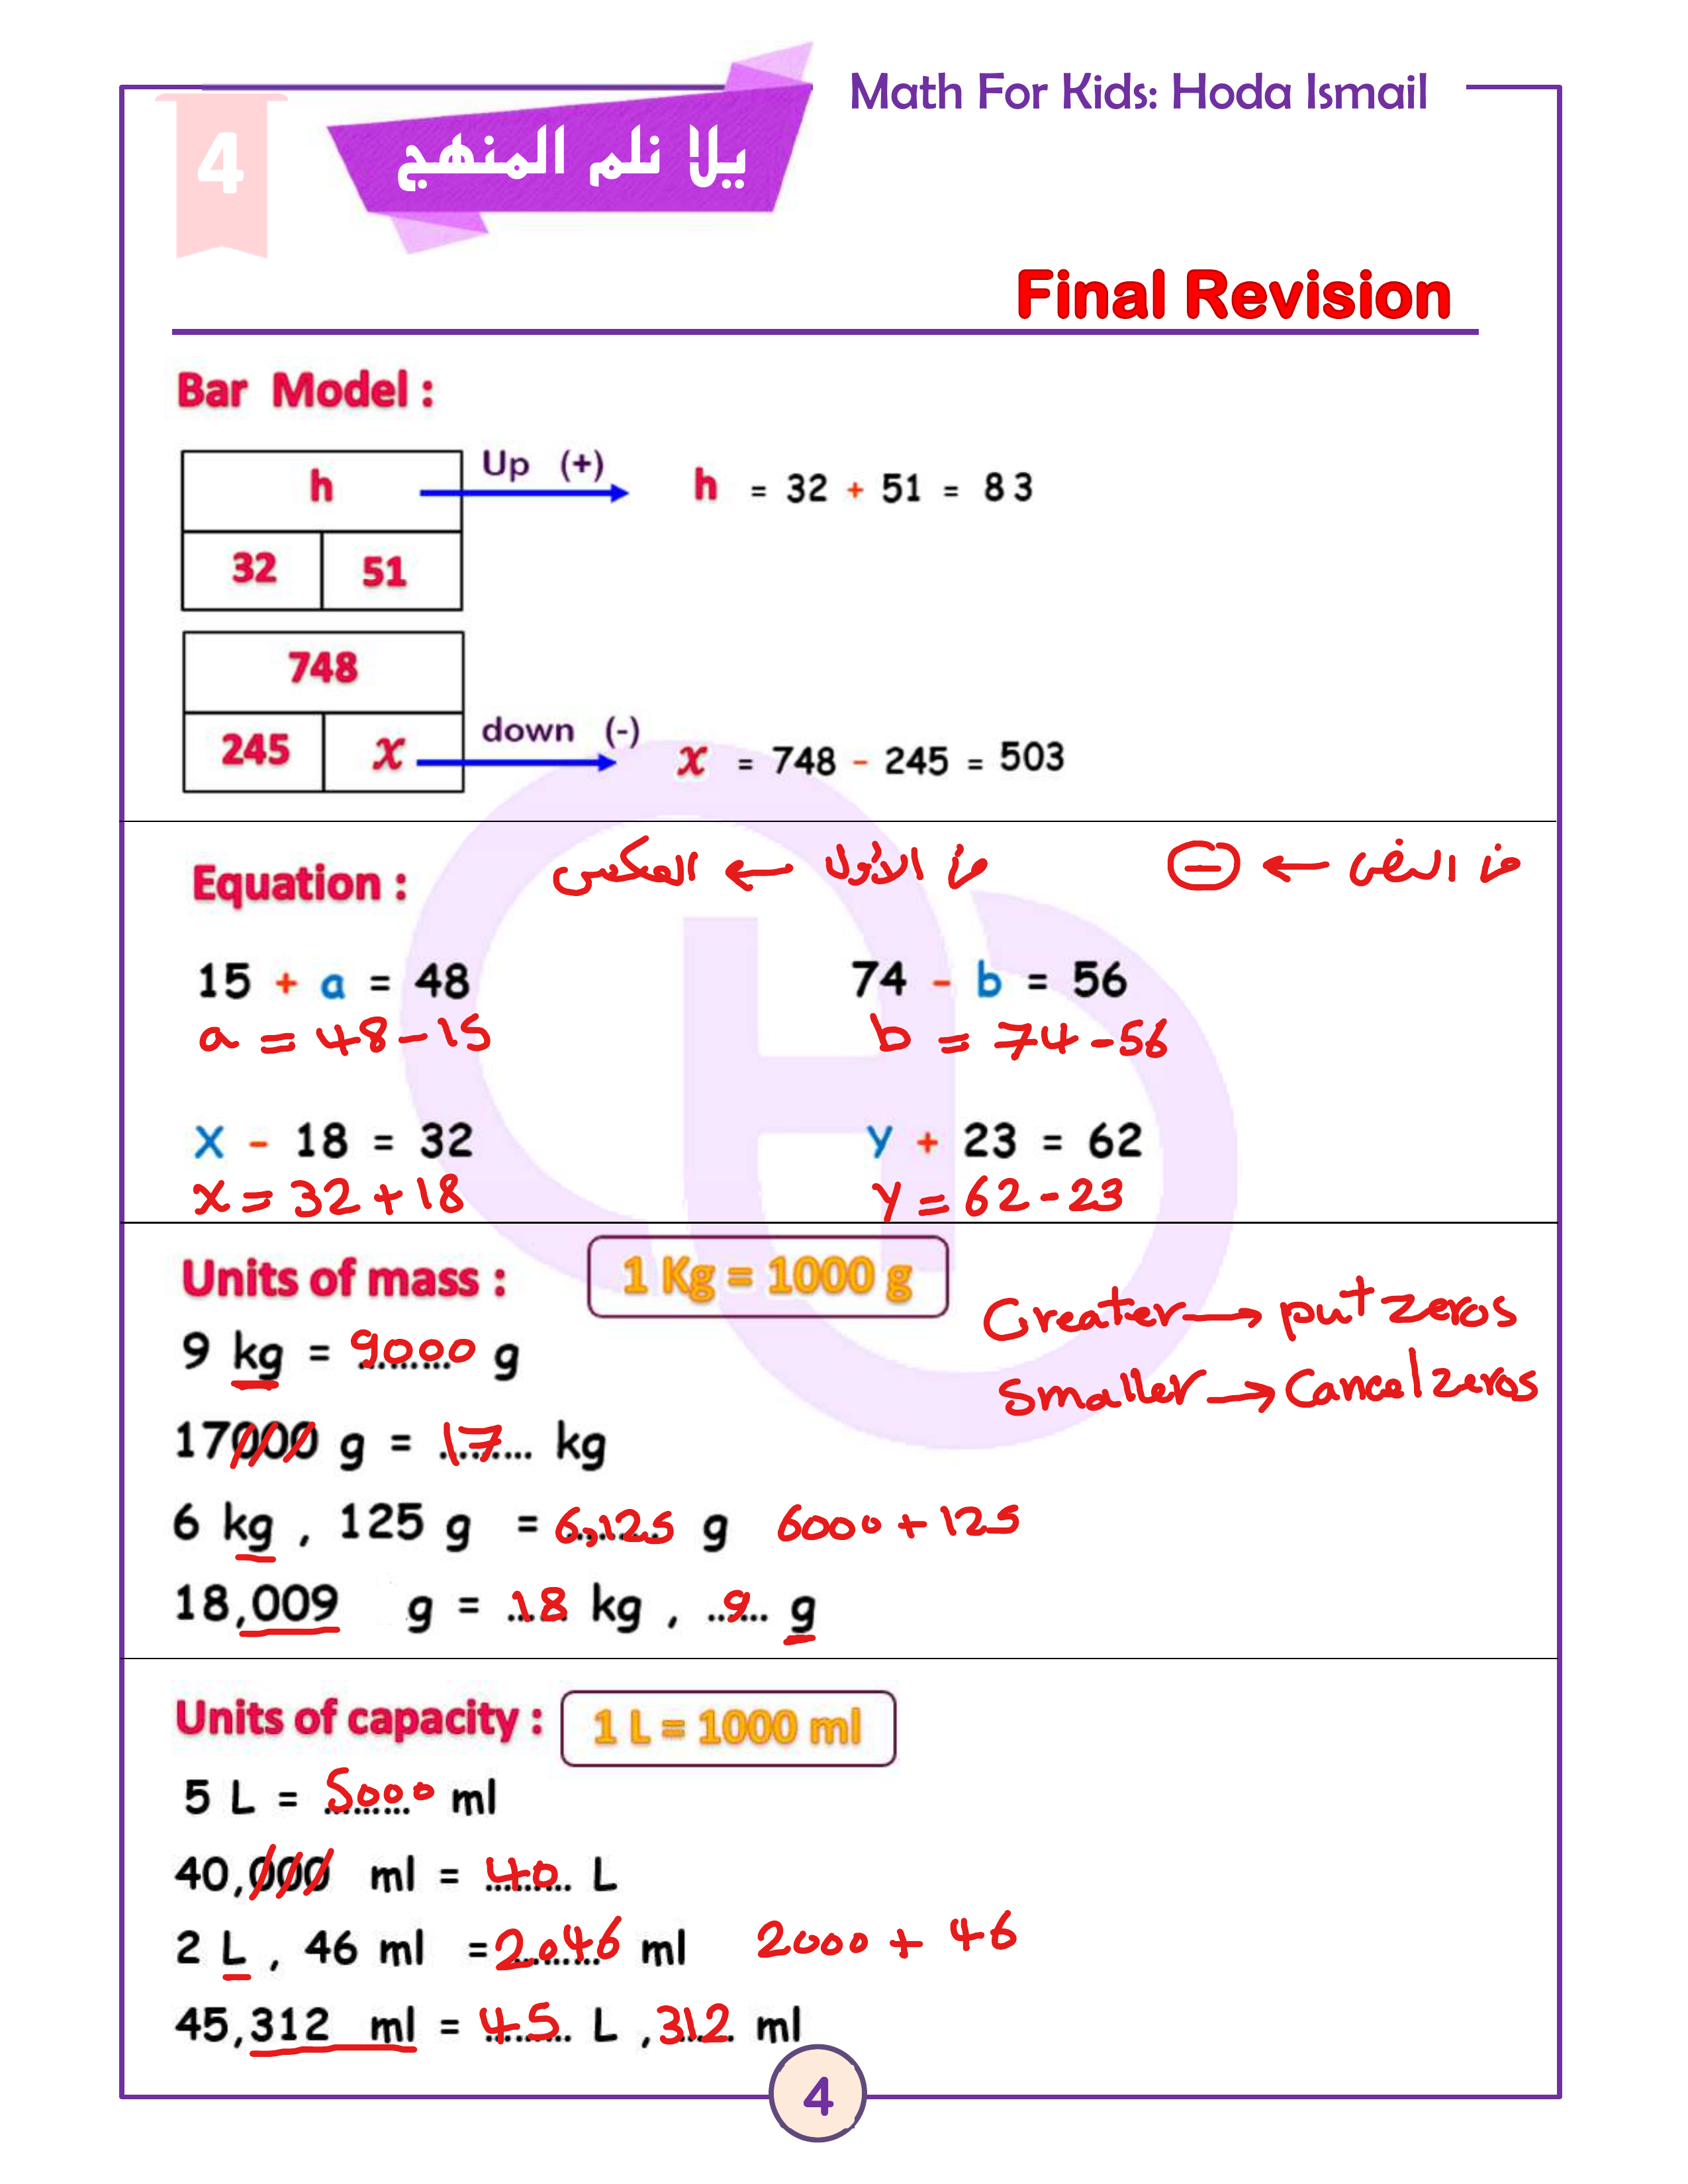 Math For Kids: Hoda Ismail
4
يلا نلم المنهج
Final Revision
Bar Model :
h
Up (+)
h = 32 + 51 = 83
32 51
748
245 x
down (-)
x = 748 - 245 = 503
Equation :
من الأول ← العكس
من النص ← -
15 + a = 48
74 - b = 56
a = 48 - 15
b = 74 - 56
X - 18 = 32
y + 23 = 62
x = 32 + 18
y = 62 - 23
Units of mass :
1 Kg = 1000 g
Greater → put zeros
Smaller → Cancel zeros
9 kg = 9000 g
17000 g = 17 kg
6 kg , 125 g = 6,125 g 6000 + 125
18,009 g = 18 kg , 9 g
Units of capacity :
1 L = 1000 ml
5 L = 5000 ml
40,000 ml = 40 L
2 L , 46 ml = 2046 ml 2000 + 46
45,312 ml = 45 L , 312 ml
4